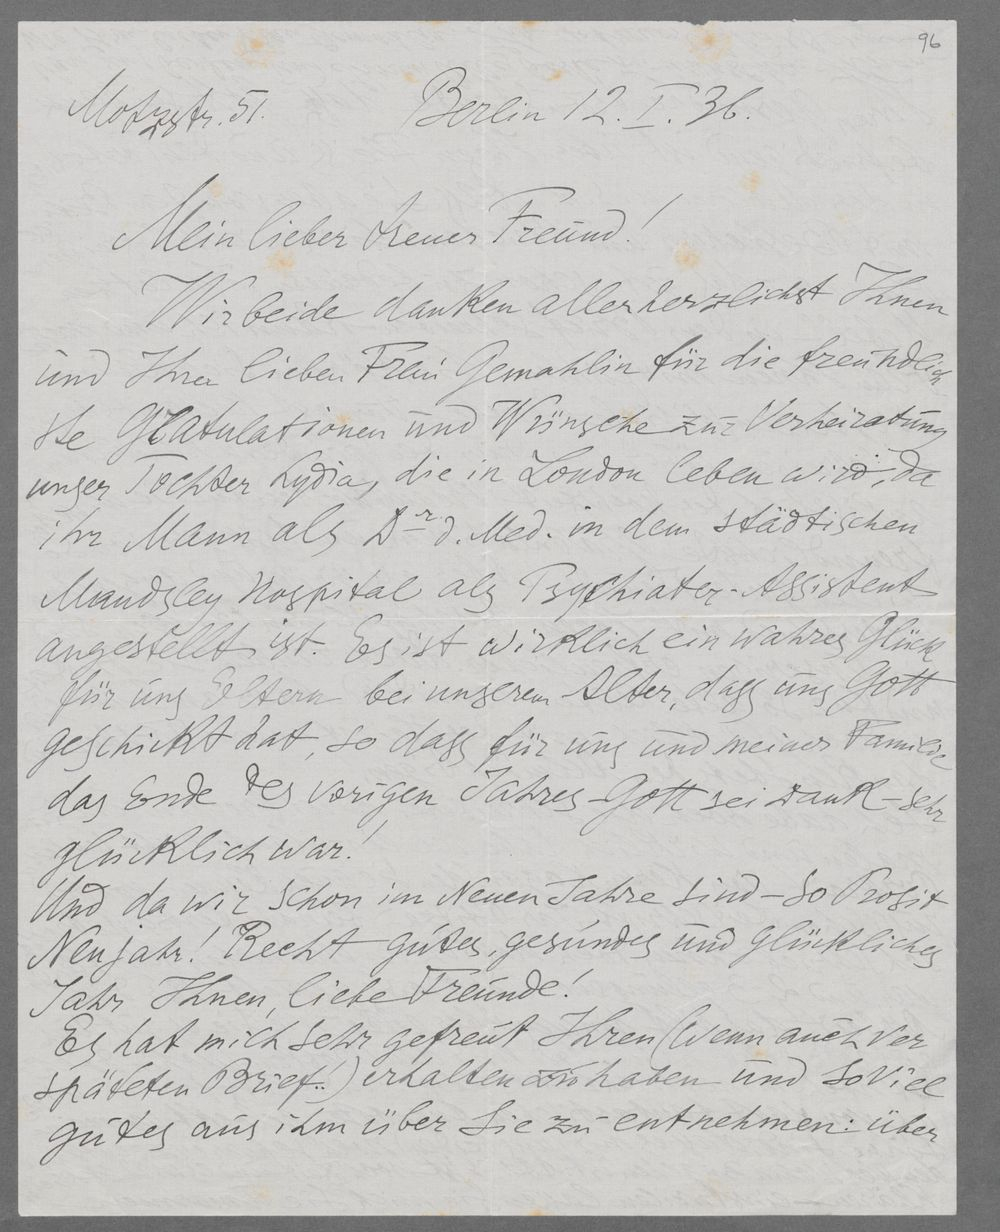 96
Motzstr. 51. Berlin 12. I. 36.
Mein lieber treuer Freund!
Wir beide danken allerherzlichst Ihnen
und Ihrer lieben Frau Gemahlin für die freundlich
ste Gratulationen und Wünsche zur Verheiratung
unser Tochter Lydia, die in London leben wird, da
ihr Mann als Dr d. Med. in dem städtischen
Maudsley Hospital als Psychiater-Assistent
angestellt ist. Es ist wirklich ein wahres Glück
für uns Eltern bei unserem Alter, dass uns Gott
geschickt hat, so dass für uns und meiner Familie
das Ende des vorigen Jahres – Gott sei Dank – sehr
glücklich war!
Und da wir schon im Neuen Jahre sind – so Prosit
Neujahr! Recht gutes, gesundes und glückliches
Jahr Ihnen, liebe Freunde!
Es hat mich sehr gefreut Ihren (wenn auch ver
späteten Brief!) erhalten zu haben und so viel
gutes aus ihm über Sie zu entnehmen: über